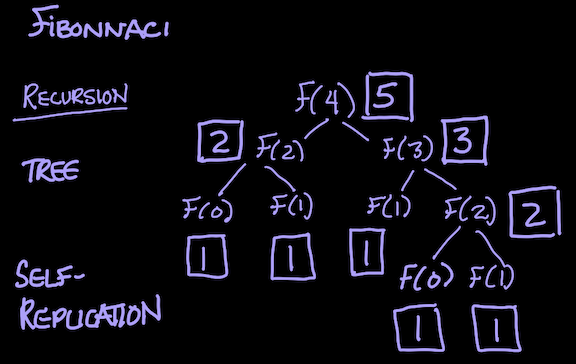 FIBONNACI
RECURSION
TREE
SELF-
REPLICATION
F(4) 5
2 F(2) F(3) 3
F(0) F(1) F(1) F(2) 2
1 1 1
F(0) F(1)
1 1